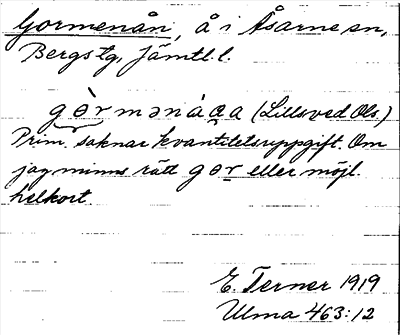 Gormenån, å i Åsarne sn,
Bergs tg, Jämtl. l.
gòrmǝnáa̱a (Lillsved Ols.)
Prim. saknar kvantitetsuppgift. Om
jag minns rätt gor eller möjl.
helkort.
E. Terner 1919
Ulma 463:12